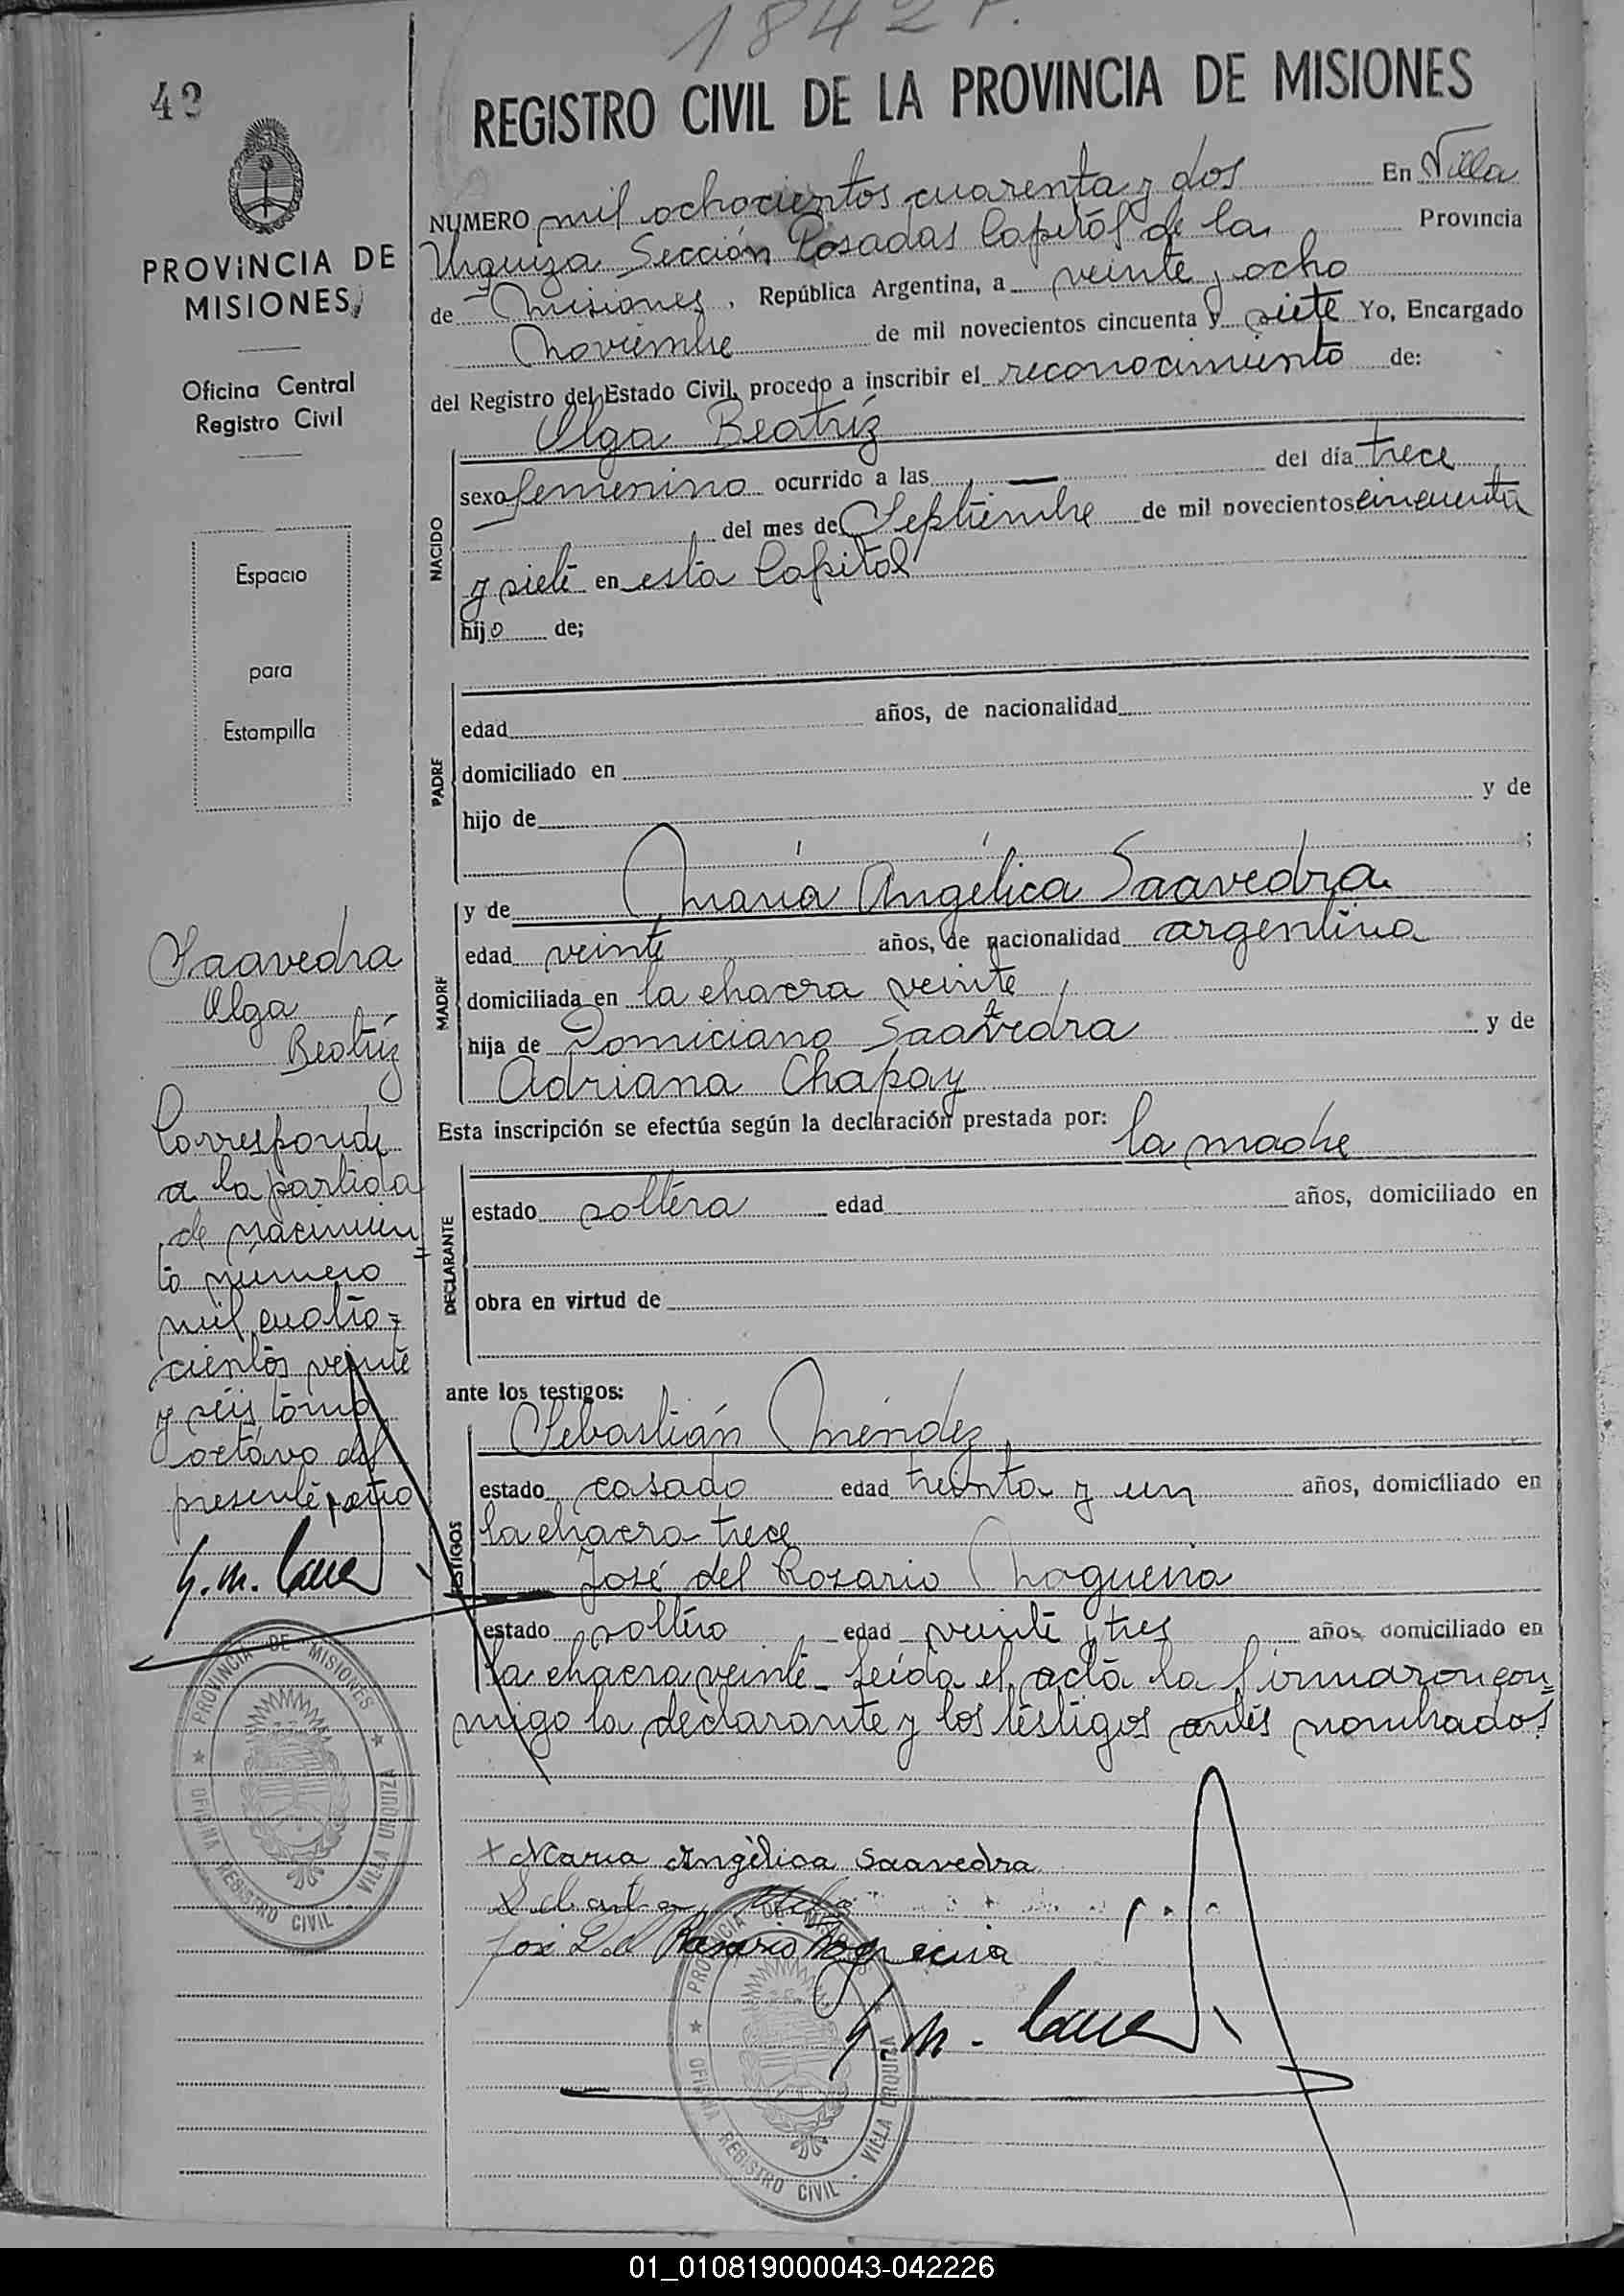 1842
42
REGISTRO CIVIL DE LA PROVINCIA DE MISIONES
NUMERO mil ochocientos cuarenta y dos En Villa
Urquiza Sección Posadas Capitál de la Provincia
de Misiones, República Argentina, a veinte y ocho
Noviembre de mil novecientos cincuenta y siete Yo, Encargado
del Registro del Estado Civil, procedo a inscribir el reconocimiento de:
Olga Beatriz
NACIDO
sexo femenino ocurrido a las — del día trece
— del mes de Septiembre de mil novecientos cincuenta
y siete en esta Capital
hijo de;
PADRE
edad años, de nacionalidad
domiciliado en
hijo de y de
;
MADRE
y de María Angélica Saavedra
edad veinte años, de nacionalidad argentina
domiciliada en la chacra veinte
hija de Domiciano Saavedra y de
Adriana Chapay
Esta inscripción se efectúa según la declaración prestada por: la madre
DECLARANTE
estado soltera edad años, domiciliado en
obra en virtud de
ante los testigos:
Sebastián Méndez
TESTIGOS
estado casado edad treinta y un años, domiciliado en
la chacra trece
José del Rosario Nogueira
estado soltero edad veinte y tres años domiciliado en
la chacra veinte_ Leída el acta la firmaron con=
migo la declarante y los testigos antes nombrados.
x Maria Angélica Saavedra
José Del Rosario
PROVINCIA DE MISIONES
OFICINA REGISTRO CIVIL - VILLA URQUIZA
PROVINCIA DE
MISIONES
Oficina Central
Registro Civil
Espacio
para
Estampilla
Saavedra
Olga
Beatriz
Corresponde
a la partida
de nacimien=
to número
mil cuatro=
cientos veinte
y séis tomo
octavo del
presente año
PROVINCIA DE MISIONES
OFICINA REGISTRO CIVIL - VILLA URQUIZA
01_010819000043-042226